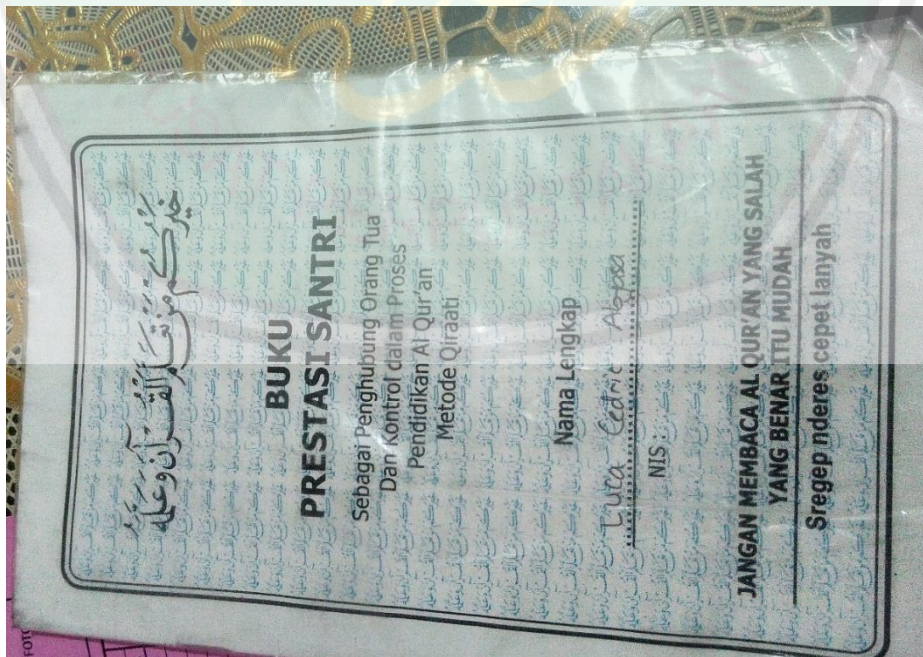 خيركم من تعلم القرآن وعلمه
BUKU
PRESTASI SANTRI
Sebagai Penghubung Orang Tua
Dan Kontrol dalam Proses
Pendidikan Al Qur'an
Metode Qiraati
Nama Lengkap
Luca Cedric
NIS :
JANGAN MEMBACA AL QUR'AN YANG SALAH
YANG BENAR ITU MUDAH
Sregep nderes cepet lanyah
FOTO